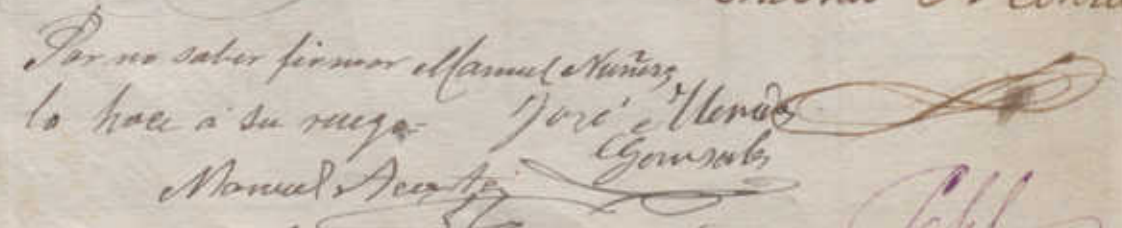 Por no saber firmar Manuel Nuñez
lo hace á su ruego= José
Gonsales
Manuel Acosta